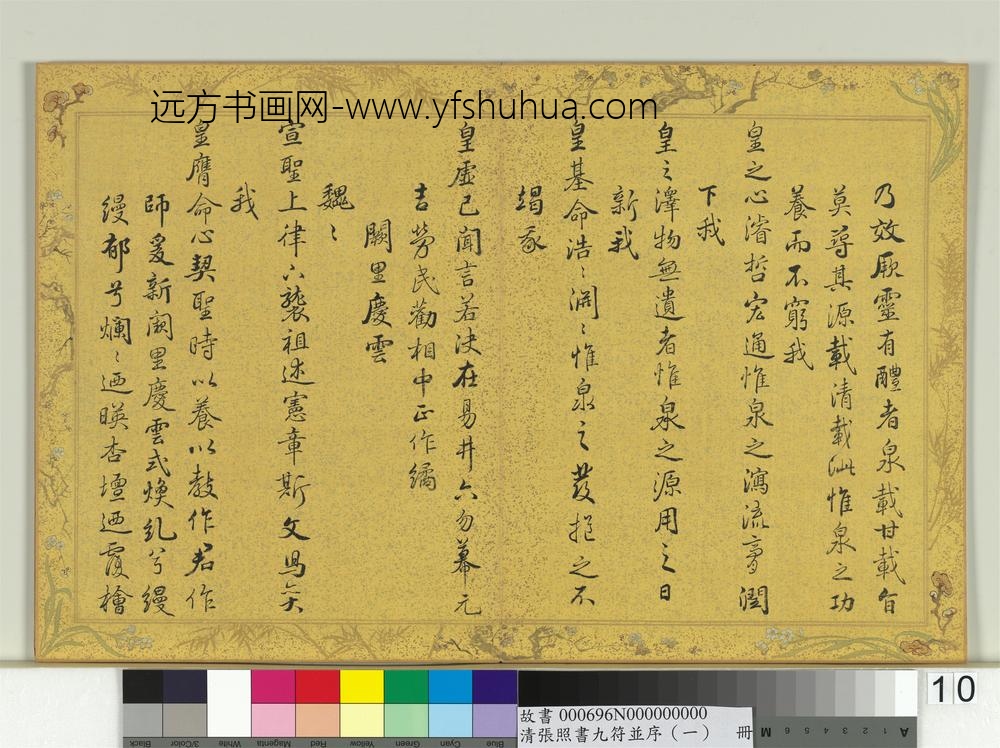 远方书画网-www.yfshuhua.com
乃效厥靈有醴者泉載甘載旨
莫尋其源載清載泚惟泉之功
養而不窮我
皇之心濬哲宏通惟泉之瀉流膏潤
下我
皇之澤物無遺者惟泉之源用之日
新我
皇基命浩〻淵〻惟泉之發挹之不
竭我
皇虛己聞言若決在易井六勿幕元
吉勞民勸相中正作繘
闕里慶雲
魏〻
宣聖上律下襲祖述憲章斯文
我
皇膺命心契聖時以養以教作君作
師爰新闕里慶雲式煥糺兮縵
縵郁兮爛〻迺暎杏壇迺覆檜
10
Black 3/Color White Magenta Red Yellow Green Cyan Blue
M 6 5 4 3 2 1 A
故書 000696N000000000
清張照書九符並序（一） 冊